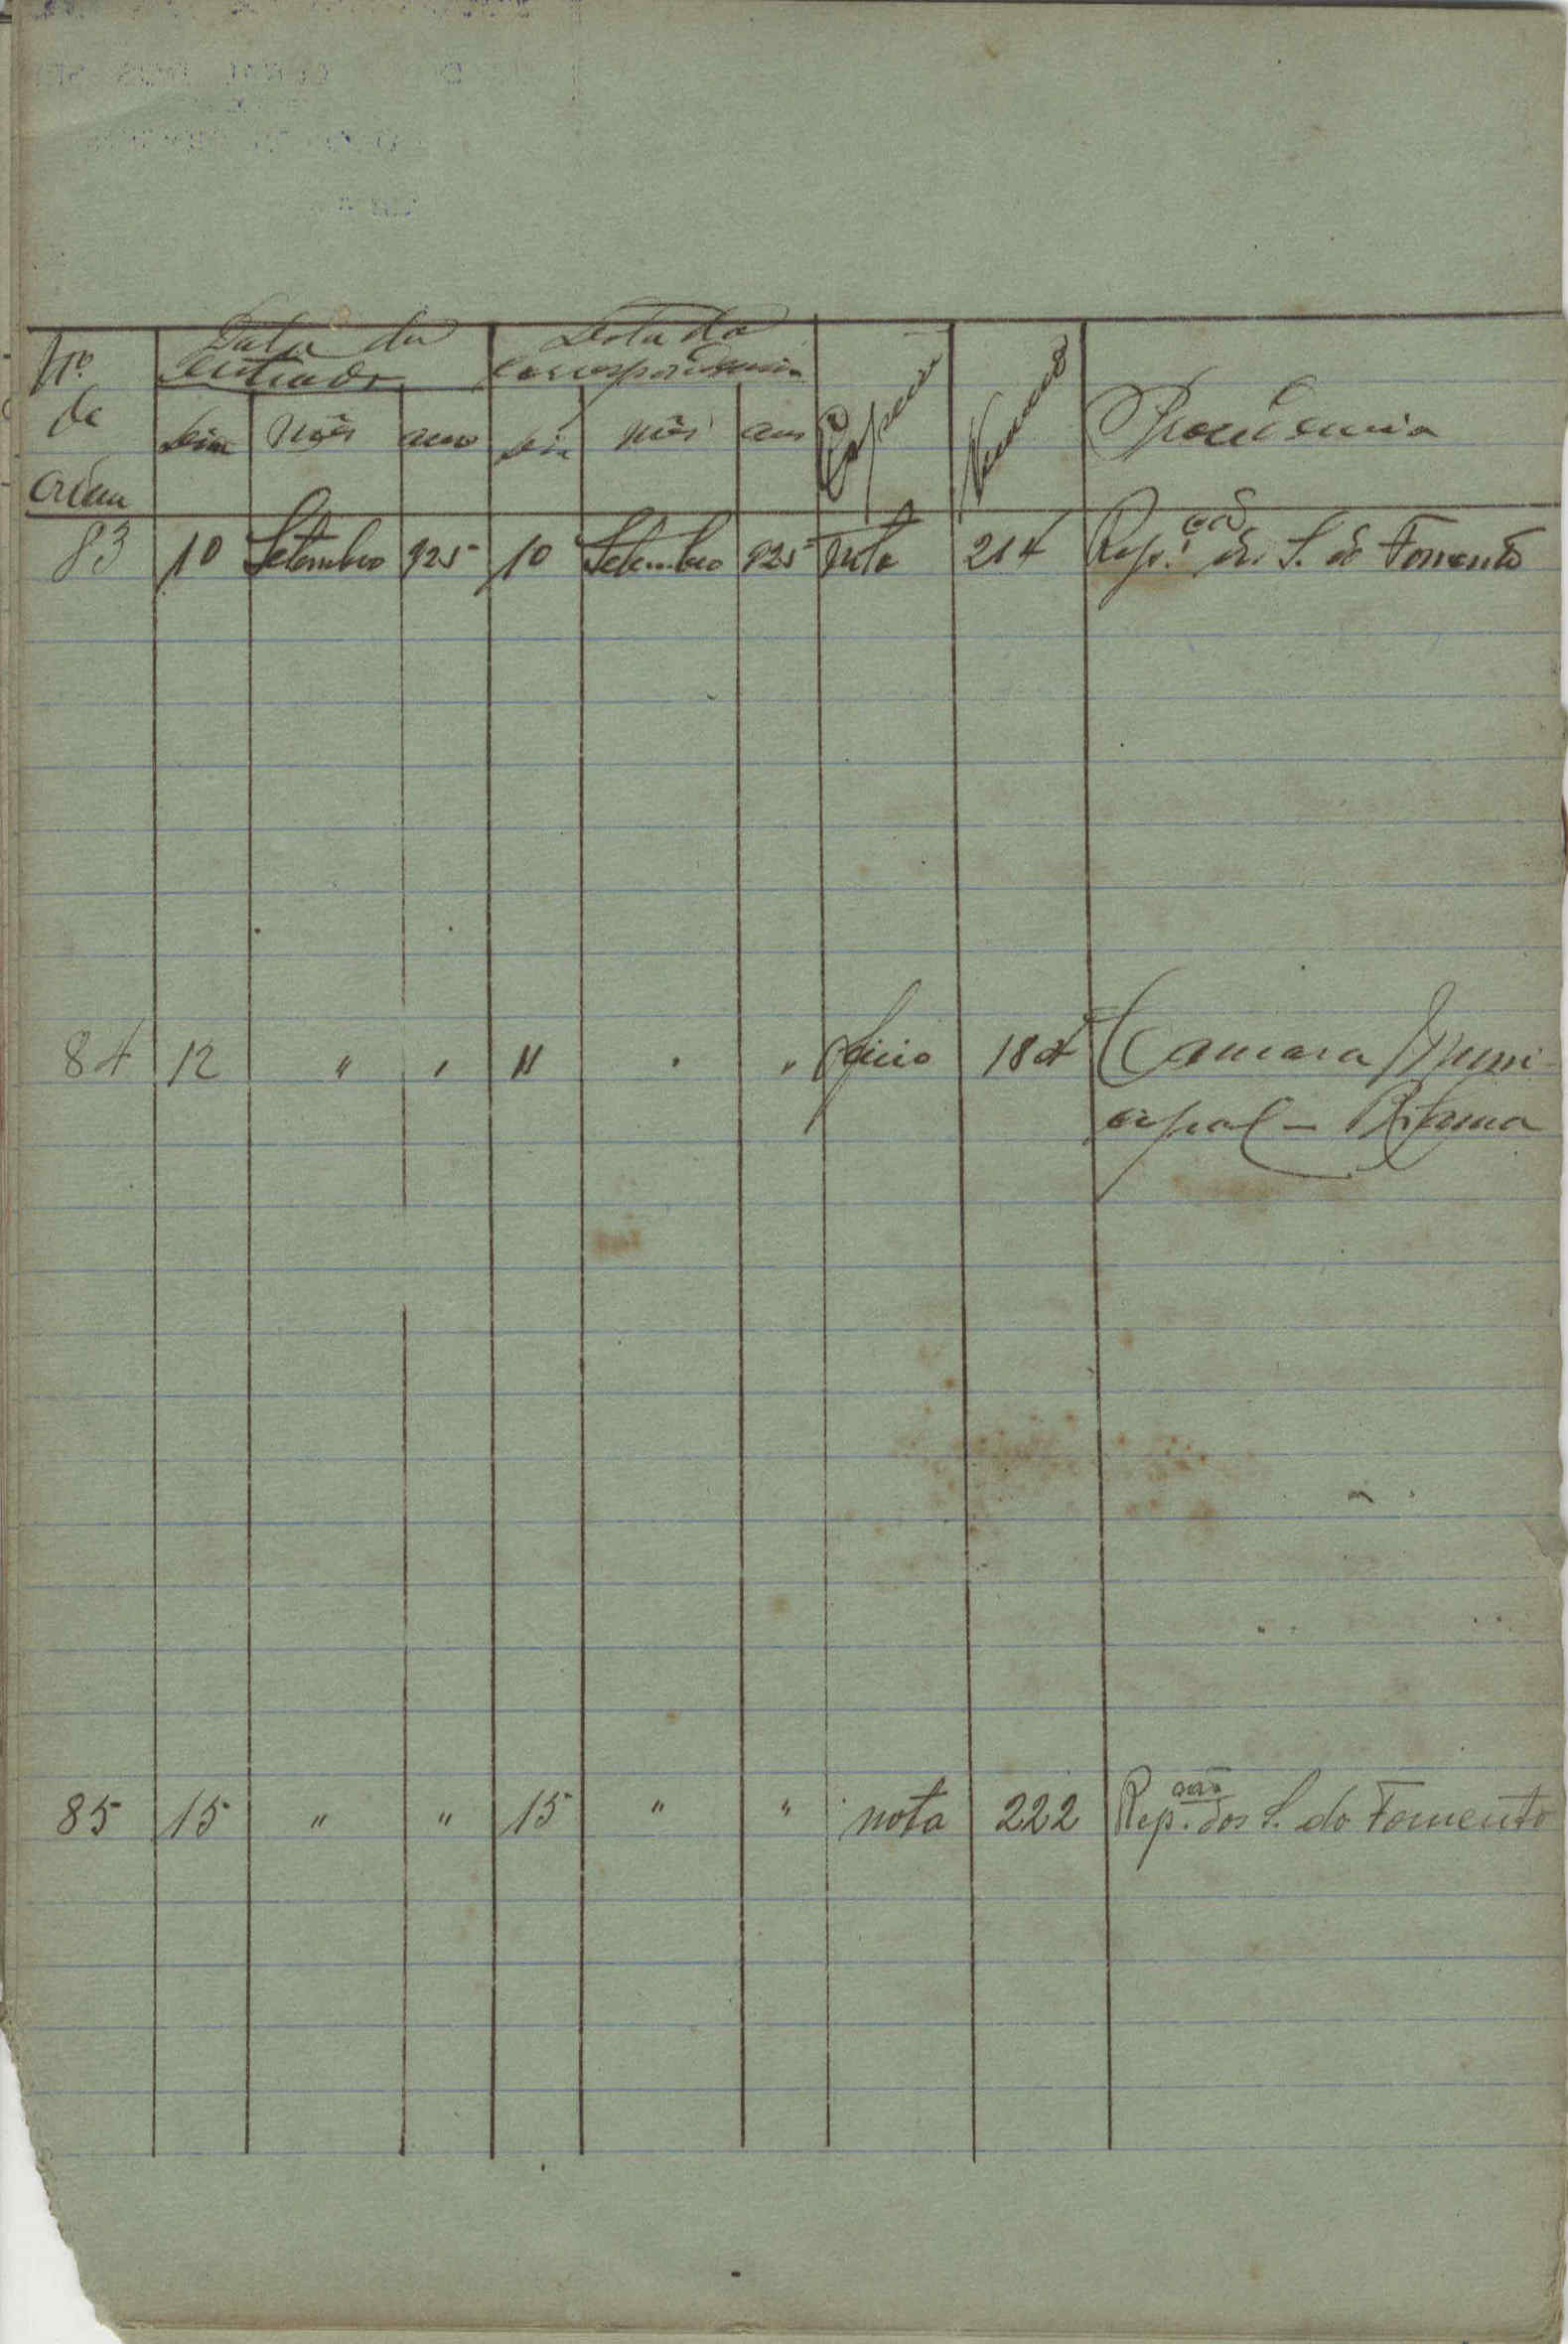 Nº de Ordem
Data da Entrada
Data da Correspondencia
dia mês ano dia mês ano
Especie
Numero
Procedencia
83 10 Setembro 925 10 Setembro 925 nota 214 Rep.ção dos S. do Fomento
84 12 " " 11 " " Oficio 184 Camara Muni-
cipal -
85 15 " " 15 " " nota 222 Rep.ção dos S. do Fomento